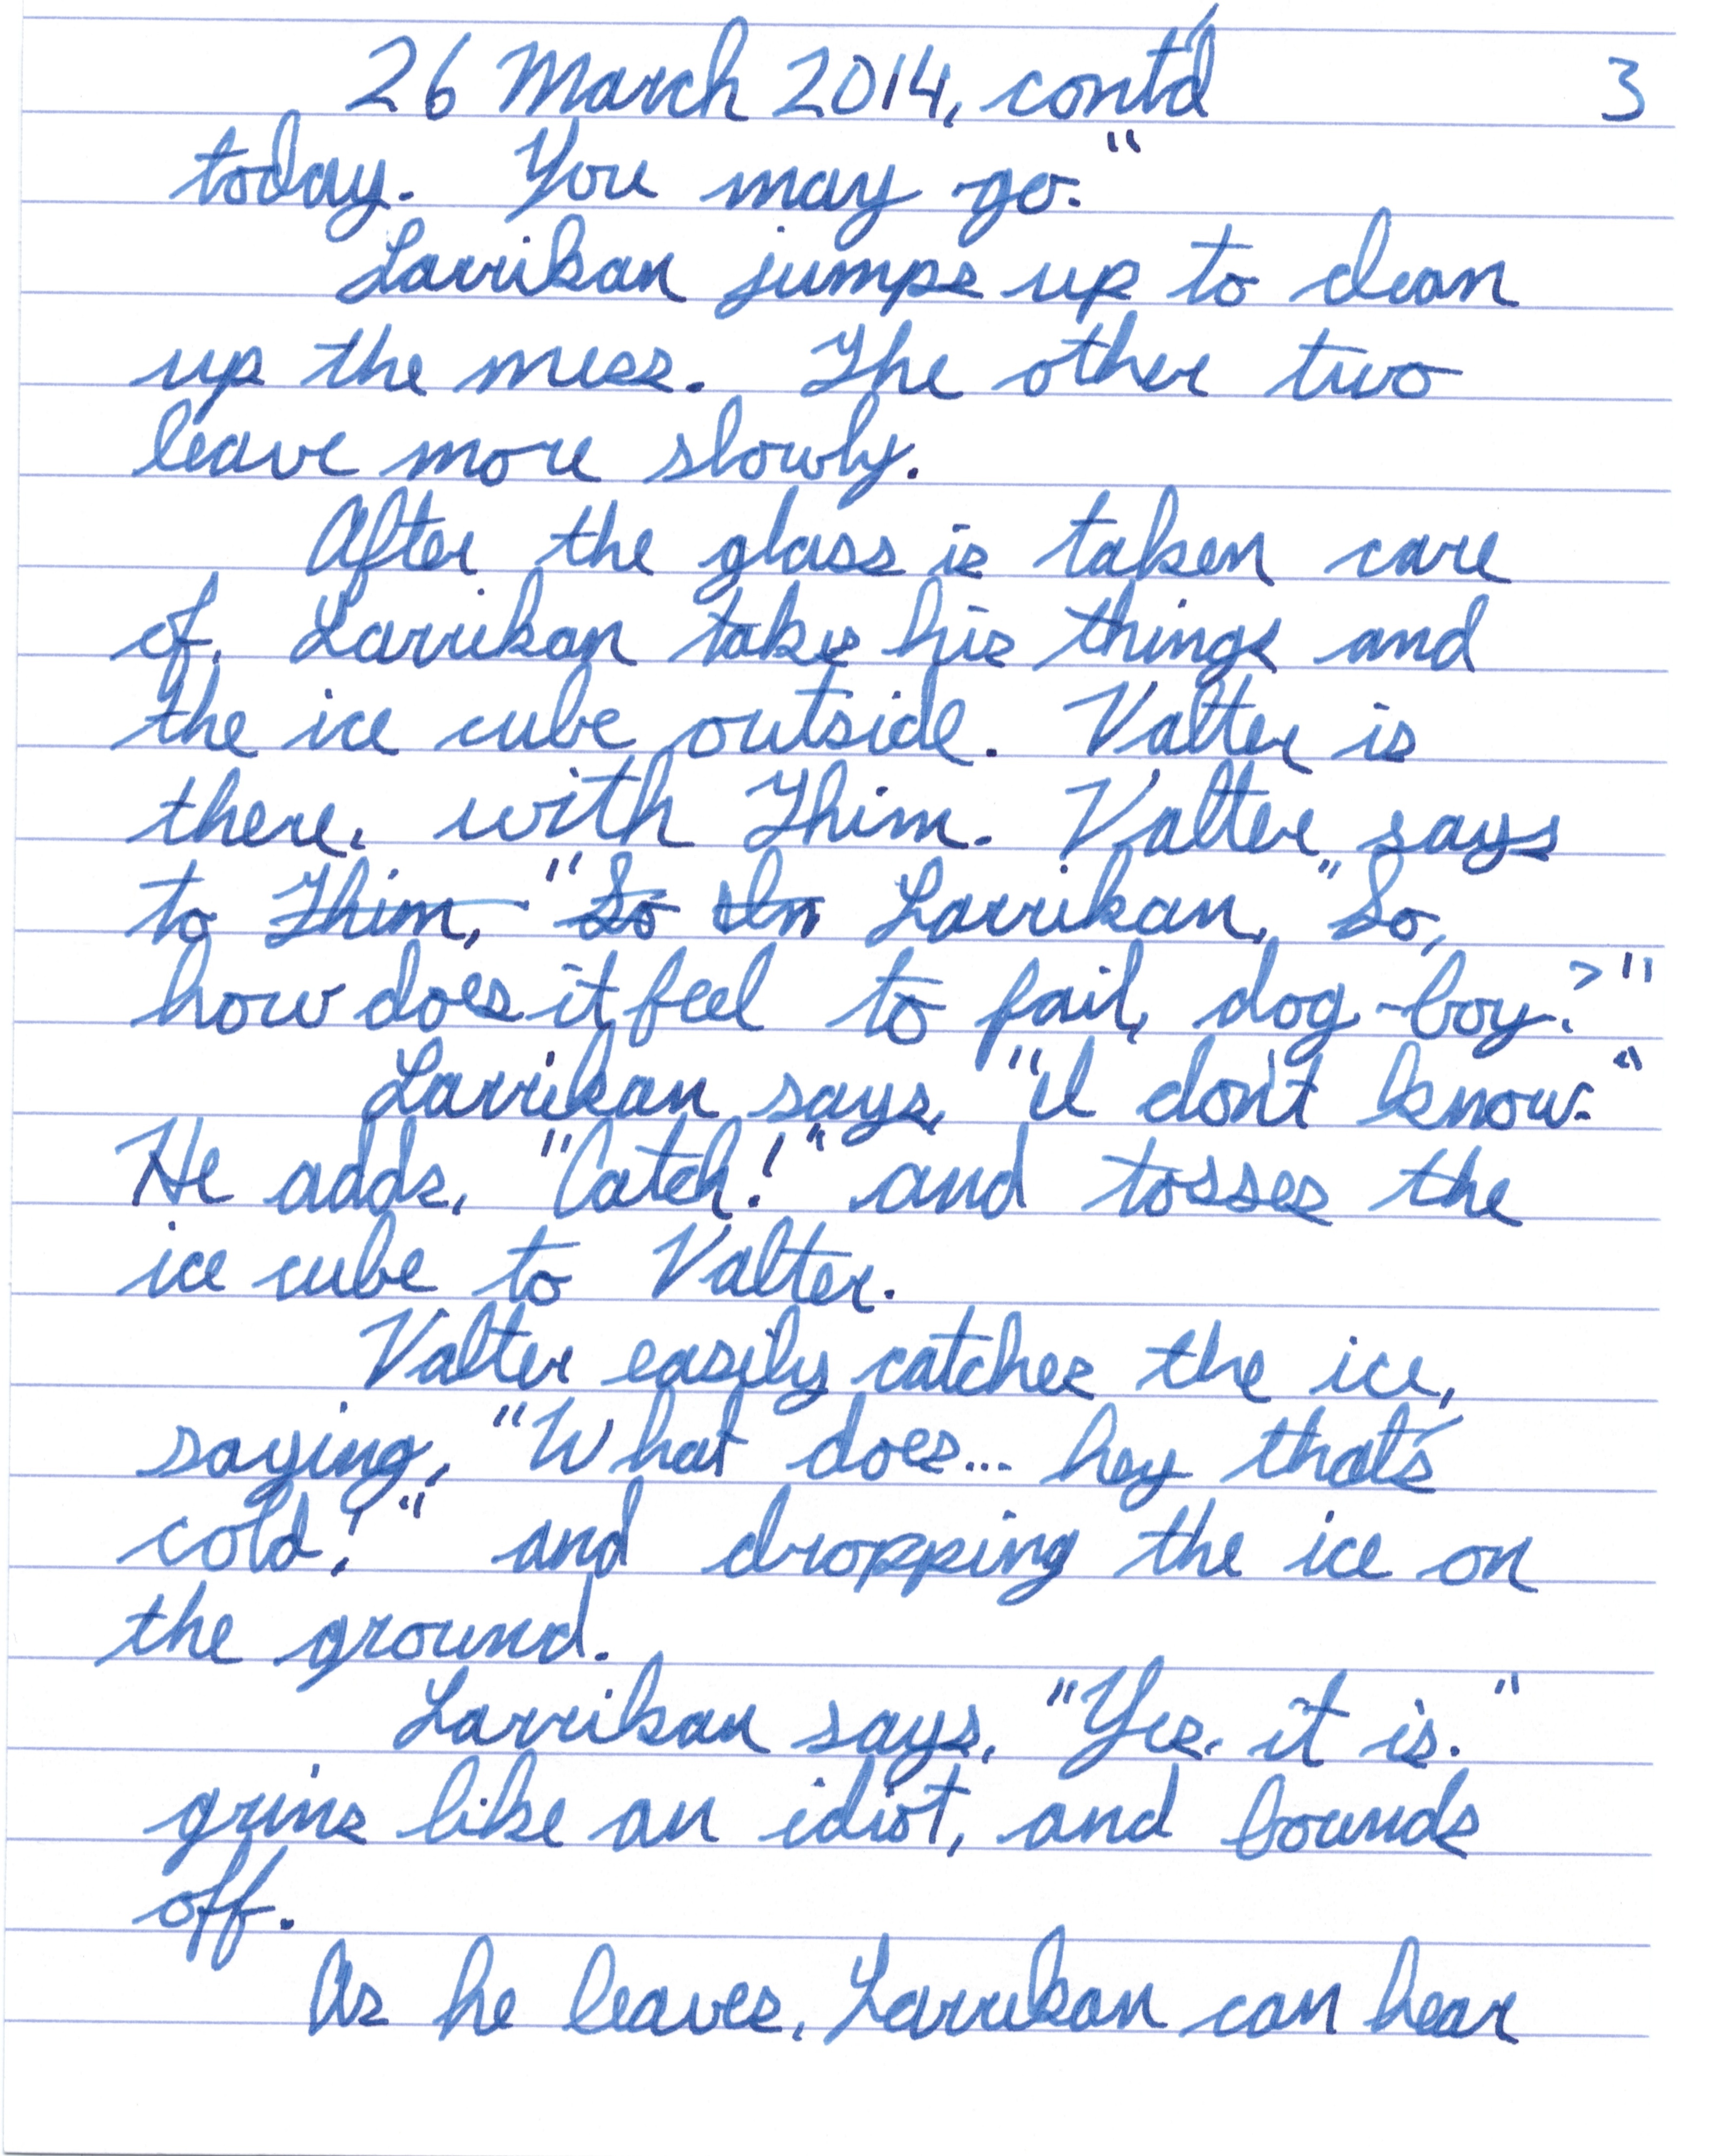 26 March 2014, cont'd 3
today. You may go."
Larrikan jumps up to clean
up the mess. The other two
leave more slowly.
After the glass is taken care
of, Larrikan takes his things and
the ice cube outside. Valter is
there, with Thim. Valter says
to Thim, "So Larrikan, "So,
how does it feel to fail, dog-boy?"
Larrikan says, "I don't know."
He adds, "Catch!" and tosses the
ice cube to Valter.
Valter easily catches the ice,
saying, "What does... hey that's
cold!" and dropping the ice on
the ground.
Larrikan says, "Yes, it is."
grins like an idiot, and bounds
off.
As he leaves, Larrikan can hear